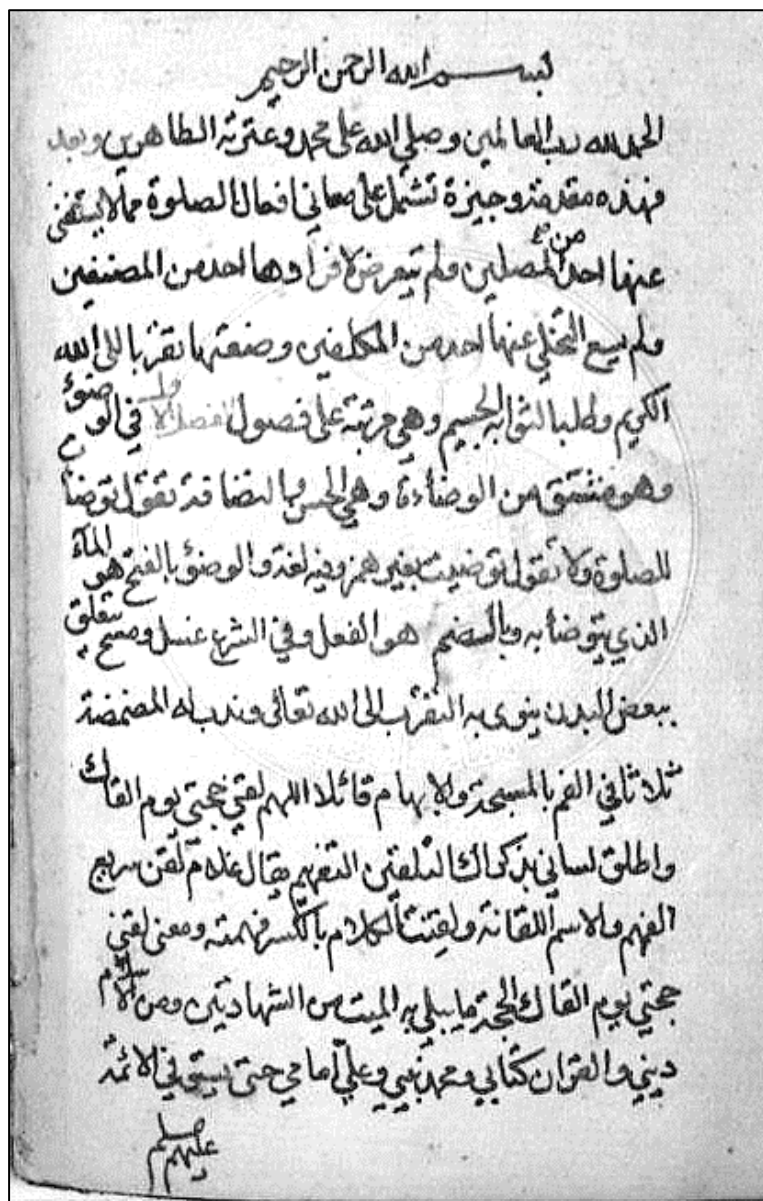 بسم الله الرحمن الرحيم
الحمد لله رب العالمين وصلي الله على محمد وعترته الطاهرين وبعد
فهذه مقدمة وجيزة تشتمل على معاني افعال الصلوة مما لا يستغنى
عنها احد من المصلين ولم يتعرض لافرادها احد من المصنفين
ولم يسع التخلي عنها احد من المكلفين وصنعتها تقربا الى الله
الكريم وطلبا لثوابه الجسيم وهي مرتبة على فصول الفصل الاول في الوضوء
وهو مشتق من الوضاءة وهي الحسن والنضافة تقول توضأ
للصلوة ولا تقول توضيت بغير همز وفيه لغة والوضؤ بالفتح هو الماء
الذي يتوضأ به وبالضم هو الفعل وفي الشرع غسل ومسح يتعلق
ببعض البدن ينوى به التقرب الى الله تعالى وندب له المضمضة
ثلاثا في الفم بالمسبحة والابهام قائلا اللهم لقني حجتي يوم القاك
واطلق لساني بذكراك التلقين التفهيم يقال غلام لقن سريع
الفهم والاسم اللقانة ولقنت الكلام بالكسر فهمته ومعنى لقني
حجتي يوم القاك الحجة ما يبلي به الميت من الشهادتين ومن الاسلام
ديني والقران كتابي ومحمد نبيي وعلي امامي حتى يستوفي الائمة
عليهم